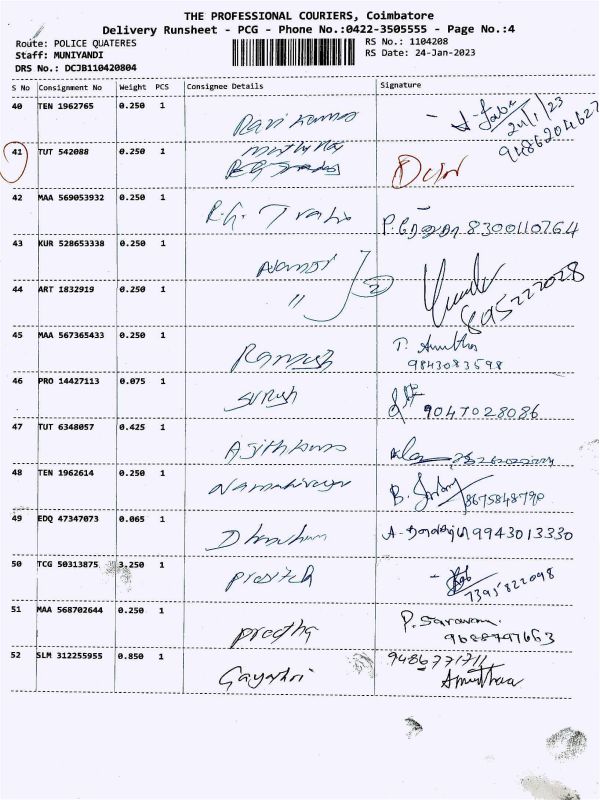 THE PROFESSIONAL COURIERS, Coimbatore
Delivery Runsheet - PCG - Phone No.:0422-3505555 - Page No.:4
Route: POLICE QUATERES RS No.: 1104208
Staff: MUNIYANDI RS Date: 24-Jan-2023
DRS No.: DCJB110420804
S No Consignment No Weight PCS Consignee Details Signature
40 TEN 1962765 0.250 1 Ravi Kumar 24/1/23
9486204627
41 TUT 542088 0.250 1
42 MAA 569053932 0.250 1 R.G. 8300110764
43 KUR 528653338 0.250 1
44 ART 1832919 0.250 1 " 2 895222028
45 MAA 567365433 0.250 1 Ramesh T. Amutha
9843083598
46 PRO 14427113 0.075 1 Suresh 9047028086
47 TUT 6348057 0.425 1 Ajithkumar
48 TEN 1962614 0.250 1 B. 8675848790
49 EDQ 47347073 0.065 1 9943013330
50 TCG 50313875 3.250 1 7395822098
51 MAA 568702644 0.250 1 Preetha P. Saravanan
9688797663
52 SLM 312255955 0.850 1 Gayathri 9486771711
Amuthaa